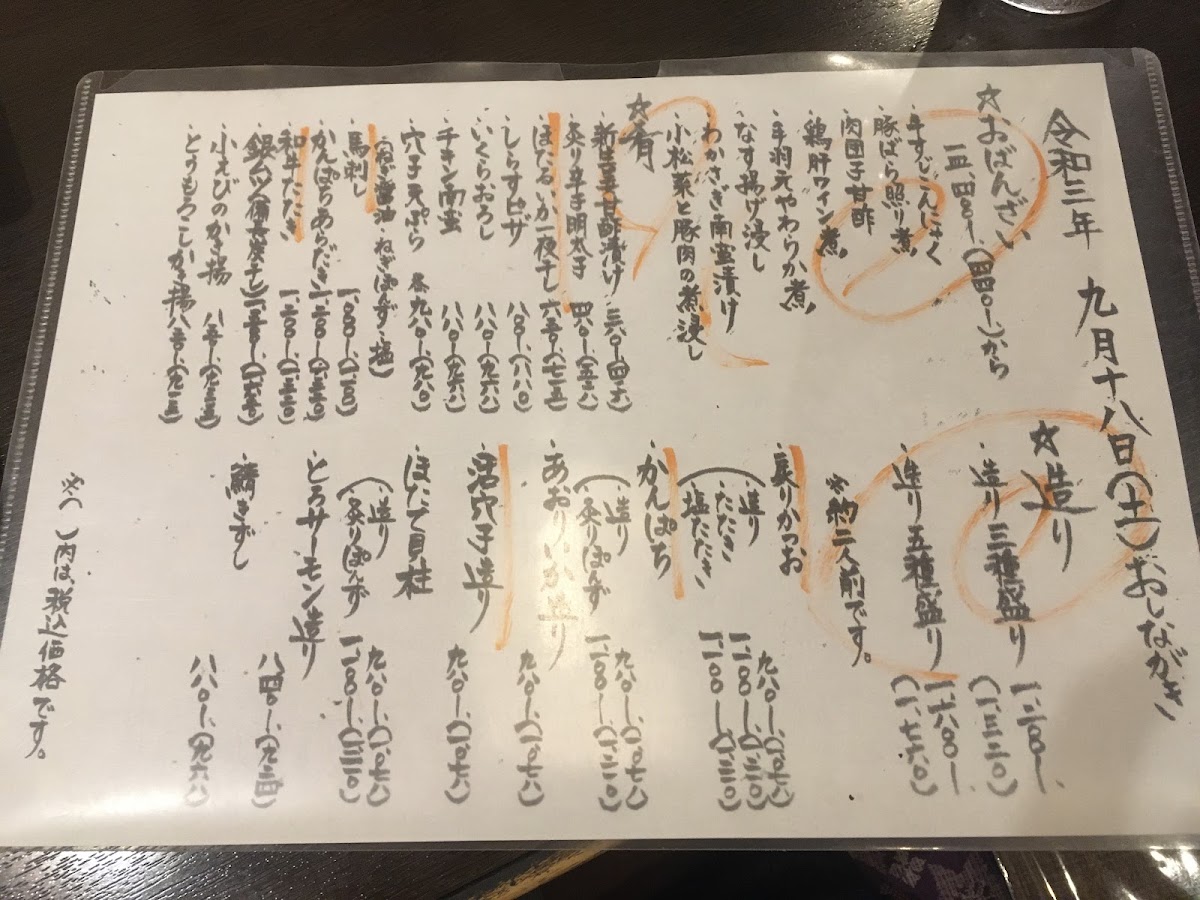 令和三年 九月十八日(土)おしながき
☆おばんざい
一品、四〇〇ー、(四四〇ー)から
・牛すじこんにゃく
・豚ばら照り煮
・肉団子甘酢
・鶏肝ワイン煮
・手羽元やわらか煮
・なす揚げ浸し
・わかさぎ南蛮漬け
・小松菜と豚肉の煮浸し
☆肴
・新生姜甘酢漬け 三八〇ー(四一八)
・炙り辛子明太子 四八〇ー(五二八)
・ほたるいか一夜干し 六五〇ー(七一五)
・しらすピザ 八〇〇ー(八八〇)
・いくらおろし 八八〇ー(九六八)
・チキン南蛮 八八〇ー(九六八)
・穴子天ぷら
(ねぎ醤油・ねぎぽんず・塩)
・馬刺し 一、〇〇〇ー(一、一〇〇)
・かんぱちあらだき 一、二〇〇ー(一、三二〇)
・和牛たたき 一、二〇〇ー(一、三二〇)
・銀ムツ(備長炭干し) 一、五〇〇ー(一、六五〇)
・小えびのかき揚
・とうもろこしかき揚 八五〇ー(九三五)
☆造り
・造り三種盛り 一、二〇〇ー、
(一、三二〇)
・造り五種盛り 一、六〇〇ー
(一、七六〇)
※約二人前です。
・戻りかつお
・造り 九八〇ー、(一、〇七八)
・たたき 一、一〇〇ー、(一、二一〇)
・塩たたき 一、一〇〇ー(一、二一〇)
・かんぱち
・造り 九八〇ー、(一、〇七八)
・炙りぽんず 一、一〇〇ー(一、二一〇)
・あおりいか造り 九八〇ー、(一、〇七八)
・活穴子造り 九八〇ー、(一、〇七八)
・ほたて貝柱
・造り 九八〇ー、(一、〇七八)
・炙りぽんず 一、一〇〇ー(一、二一〇)
・とろサーモン造り 八四〇ー、(九二四)
・鯖きずし 八八〇ー、(九六八)
※( )内は、税込価格です。